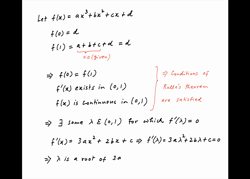 Let f(x) = ax³ + bx² + cx + d
f(0) = d
f(1) = a + b + c + d = d
=0 (given)
⇒ f(0) = f(1)
f'(x) exists in (0,1)
f(x) is continuous in (0,1)
⇒ Conditions of
Rolle's theorem
are satisfied
⇒ ∃ some λ ∈ (0,1) for which f'(λ) = 0
f'(x) = 3ax² + 2bx + c ⇒ f'(λ) = 3aλ² + 2bλ + c = 0
⇒ λ is a root of 3a